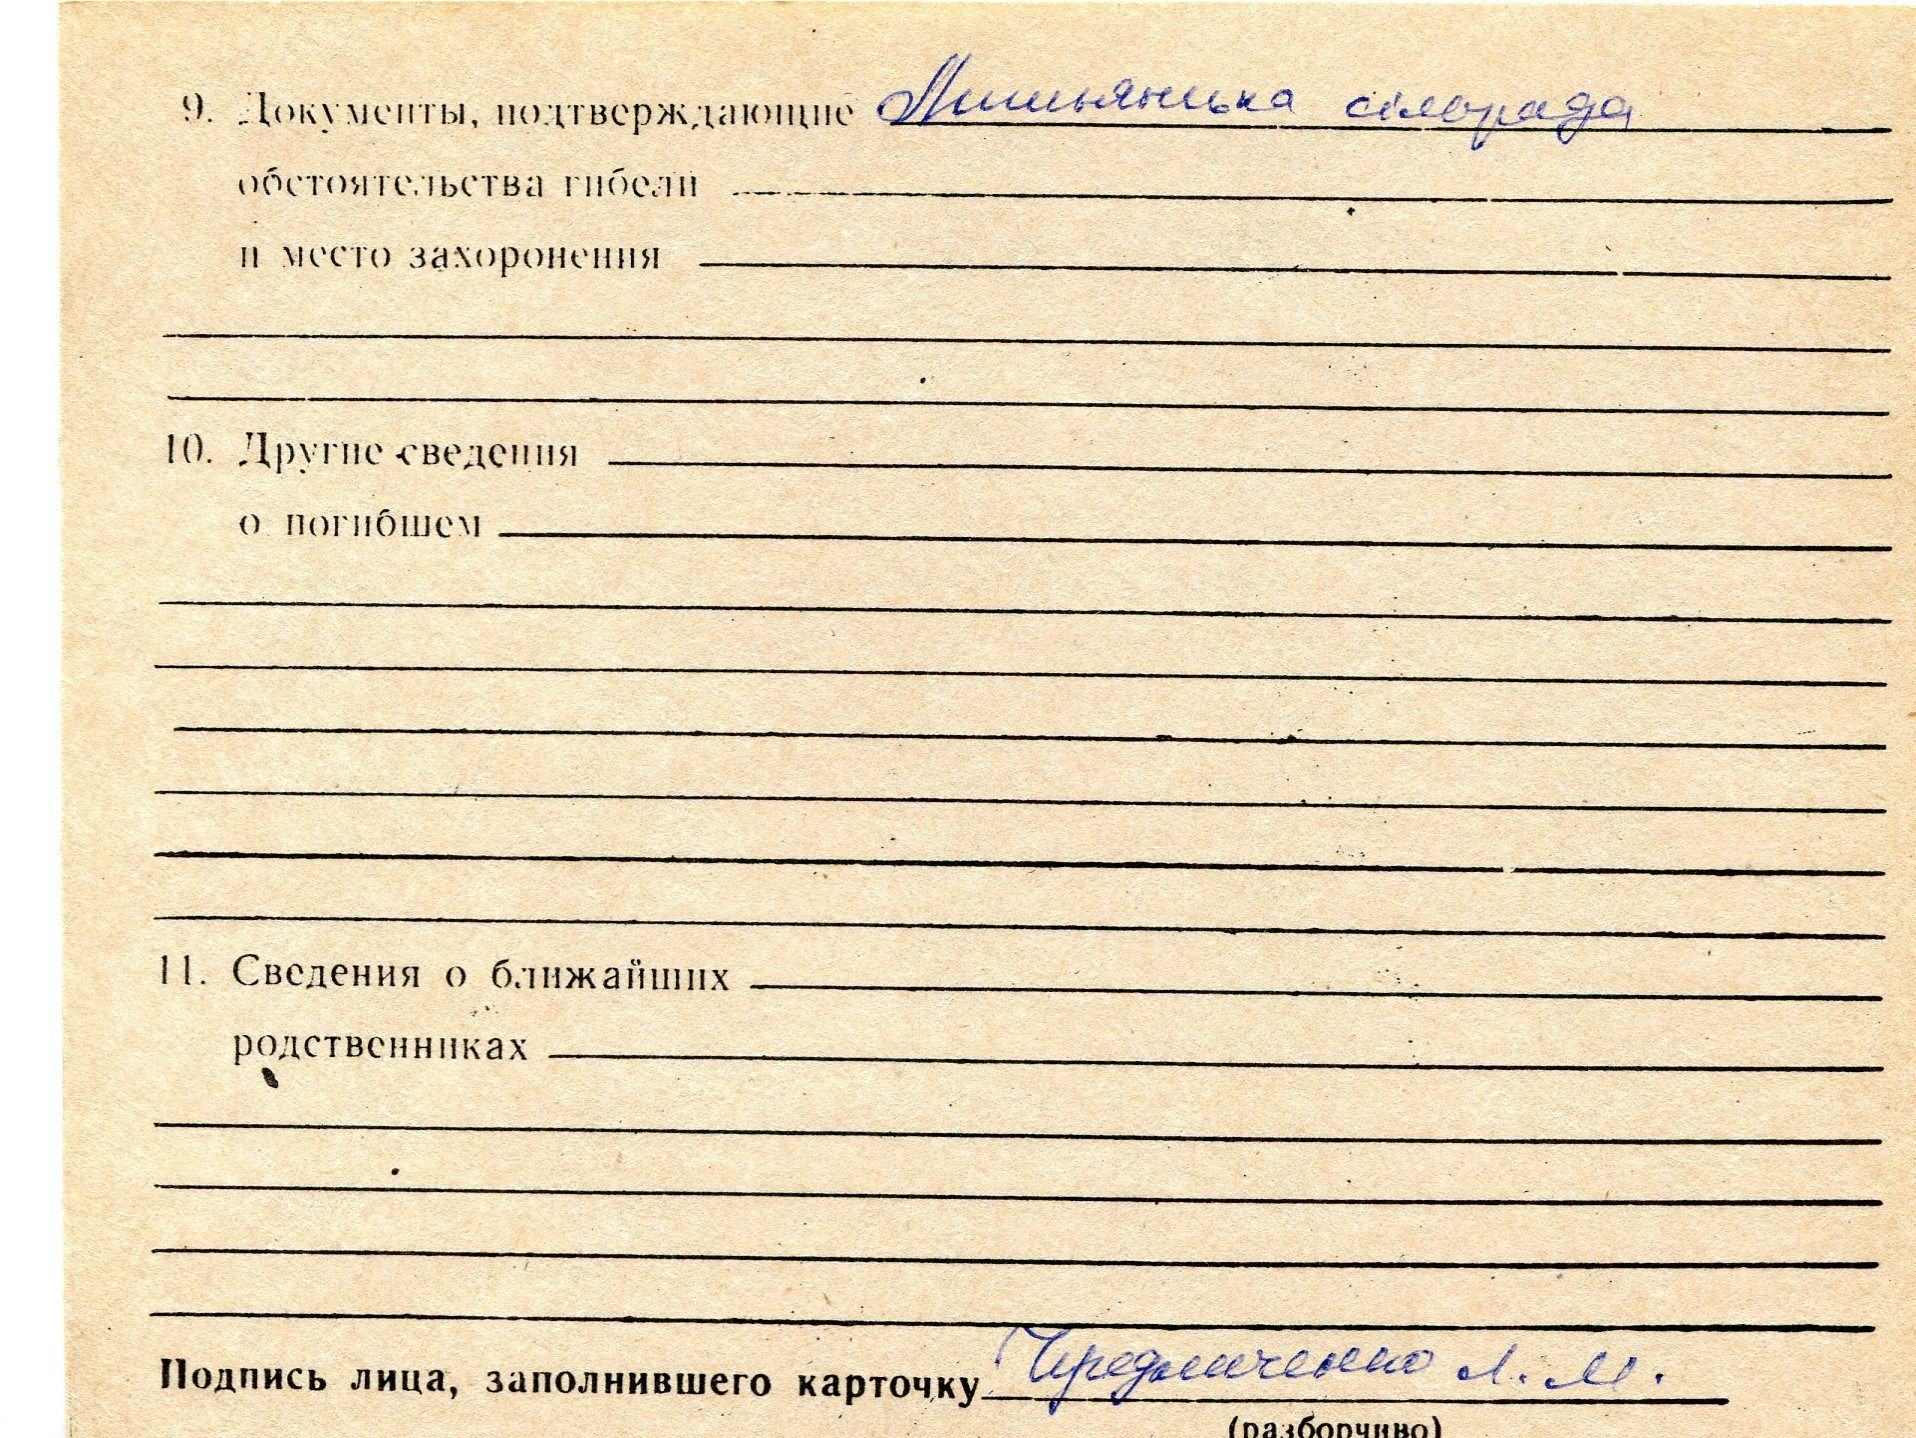 9. Документы, подтверждающие сільрада
обстоятельства гибели
и место захоронения
10. Другие сведения
о погибшем
11. Сведения о ближайших
родственниках
Подпись лица, заполнившего карточку Чередниченко Л. М.
(разборчиво)